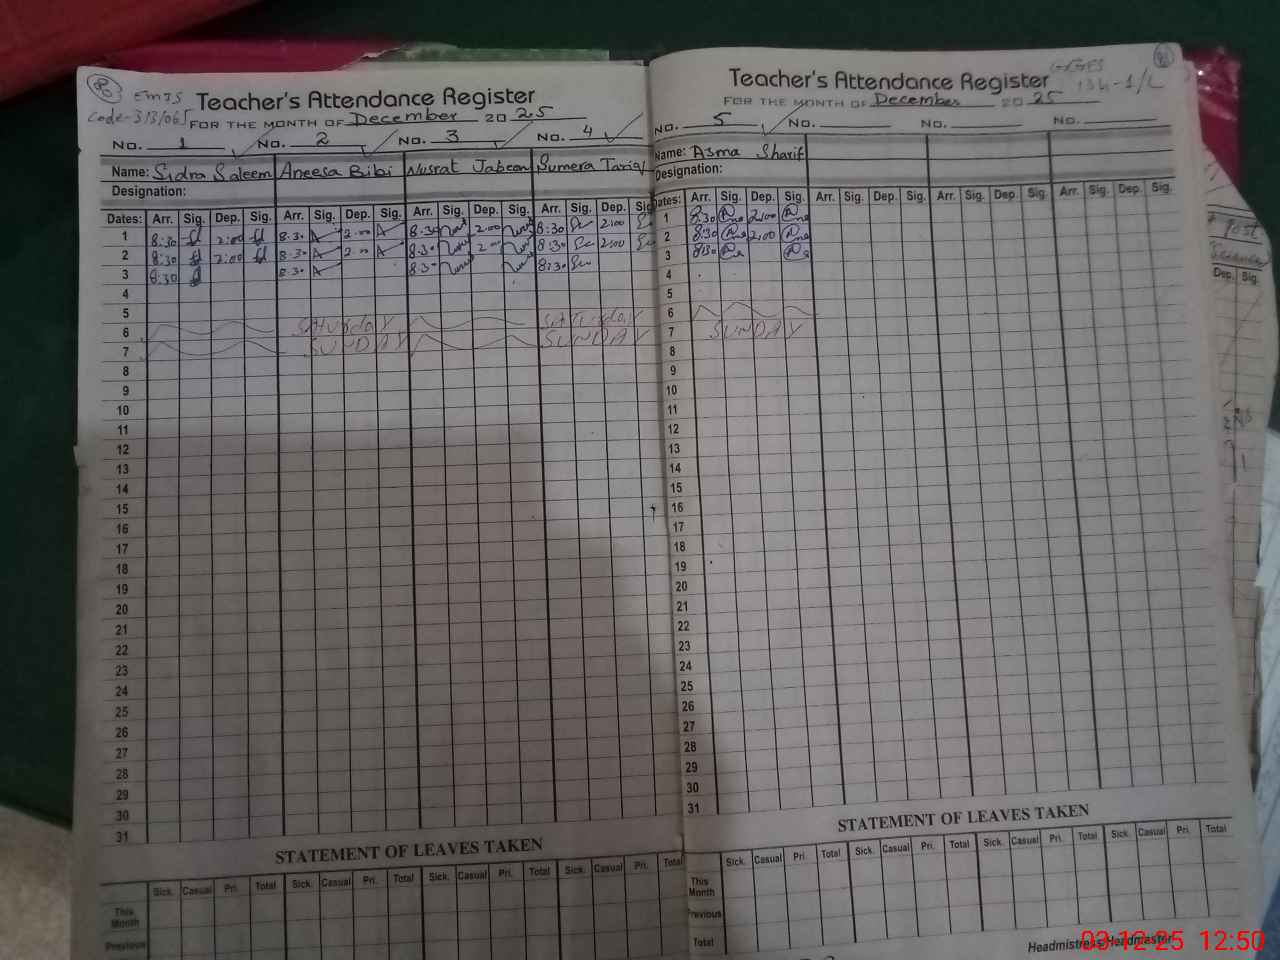 EMIS
Code-313/065
Teacher's Attendance Register
FOR THE MONTH OF December 2025
No. 1 No. 2 No. 3 No. 4
Name: Sidra Saleem Aneesa Bibi Nusrat Jabeen Sumera Tariq
Designation:
Dates: Arr. Sig. Dep. Sig. Arr. Sig. Dep. Sig. Arr. Sig. Dep. Sig. Arr. Sig. Dep. Sig
1 8:30 2:00 8.30 2.00 8.30 2.00 8:30 2:00
2 8:30 2:00 8.30 2.00 8.30 2.00 8:30 2:00
3 8:30 8.30 8.30 8:30
4
5
6 SATURDAY SATURDAY
7 SUNDAY SUNDAY
8
9
10
11
12
13
14
15
16
17
18
19
20
21
22
23
24
25
26
27
28
29
30
31
STATEMENT OF LEAVES TAKEN
Sick. Casual Pri. Total Sick. Casual Pri. Total Sick. Casual Pri. Total Sick. Casual Pri. Total
This Month
Previous
Teacher's Attendance Register
FOR THE MONTH OF December 2025
No. 5 No. No. No.
Name: Asma Sharif
Designation:
Dates: Arr. Sig. Dep. Sig. Arr. Sig. Dep. Sig. Arr. Sig. Dep. Sig. Arr. Sig. Dep. Sig.
1 8:30 2:00
2 8:30 2:00
3 8:30
4
5
6
7 SUNDAY
8
9
10
11
12
13
14
15
16
17
18
19
20
21
22
23
24
25
26
27
28
29
30
31
STATEMENT OF LEAVES TAKEN
Sick. Casual Pri. Total Sick. Casual Pri. Total Sick. Casual Pri. Total Sick. Casual Pri. Total
This Month
Previous
Total
Headmistress/Headmaster
Dep. Sig.
03-12-25 12:50